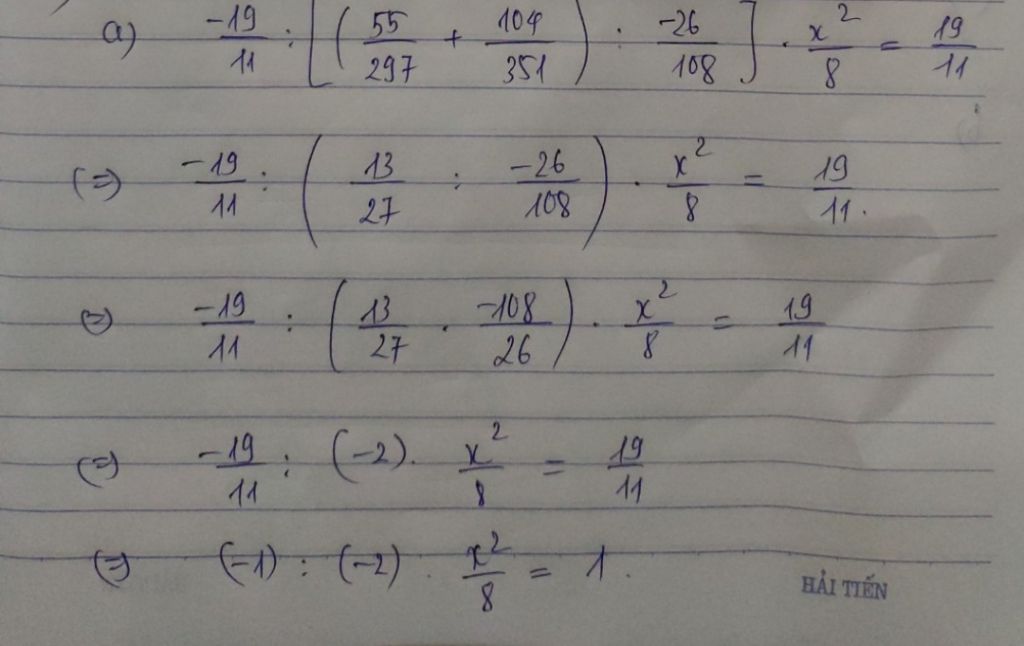 a) -19/11 : [(55/297 + 104/351) : -26/108] . x²/8 = 19/11
(=) -19/11 : (13/27 : -26/108) . x²/8 = 19/11.
(=) -19/11 : (13/27 . -108/26) . x²/8 = 19/11
(=) -19/11 : (-2). x²/8 = 19/11
(=) (-1) : (-2) . x²/8 = 1.
HẢI TIẾN